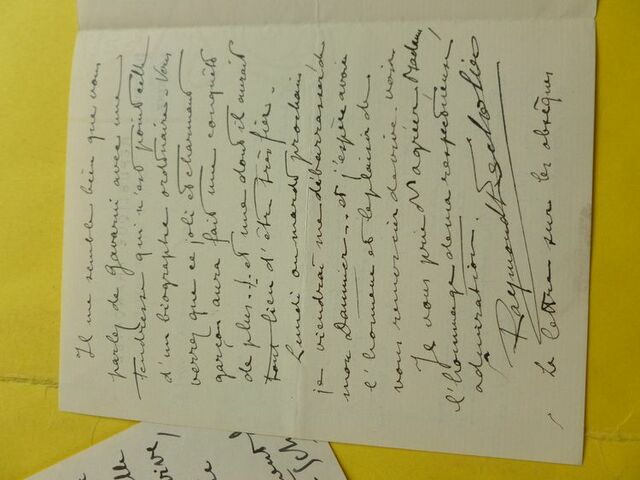 Il me semble bien que vous
parlez de Gavarni avec une
tendresse qui n'est point celle
d'un biographe ordinaire. Vous
verrez que ce joli et charmant
garçon aura fait une conquête
de plus.. et une dont il aurait
tout lieu d'être très fier.
Lundi ou mardi prochain
je viendrai me débarrasser de
mon Daumier.. et j'espère avoir
l'honneur et le plaisir de
vous remercier de vive voix
Je vous prie d'agréer Madame
l'hommage de ma respectueuse
admiration.
Raymond Escholier
La lettre sur les obsèques